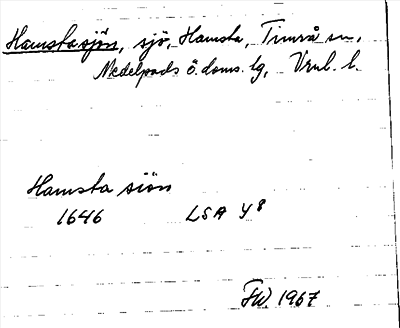 Hamstasjön, sjö, Hamsta, Timrå sn,
Medelpads ö. doms. lg, Vrnl. l.
Hamsta siön
1646 LSA Y 8
FW. 1967